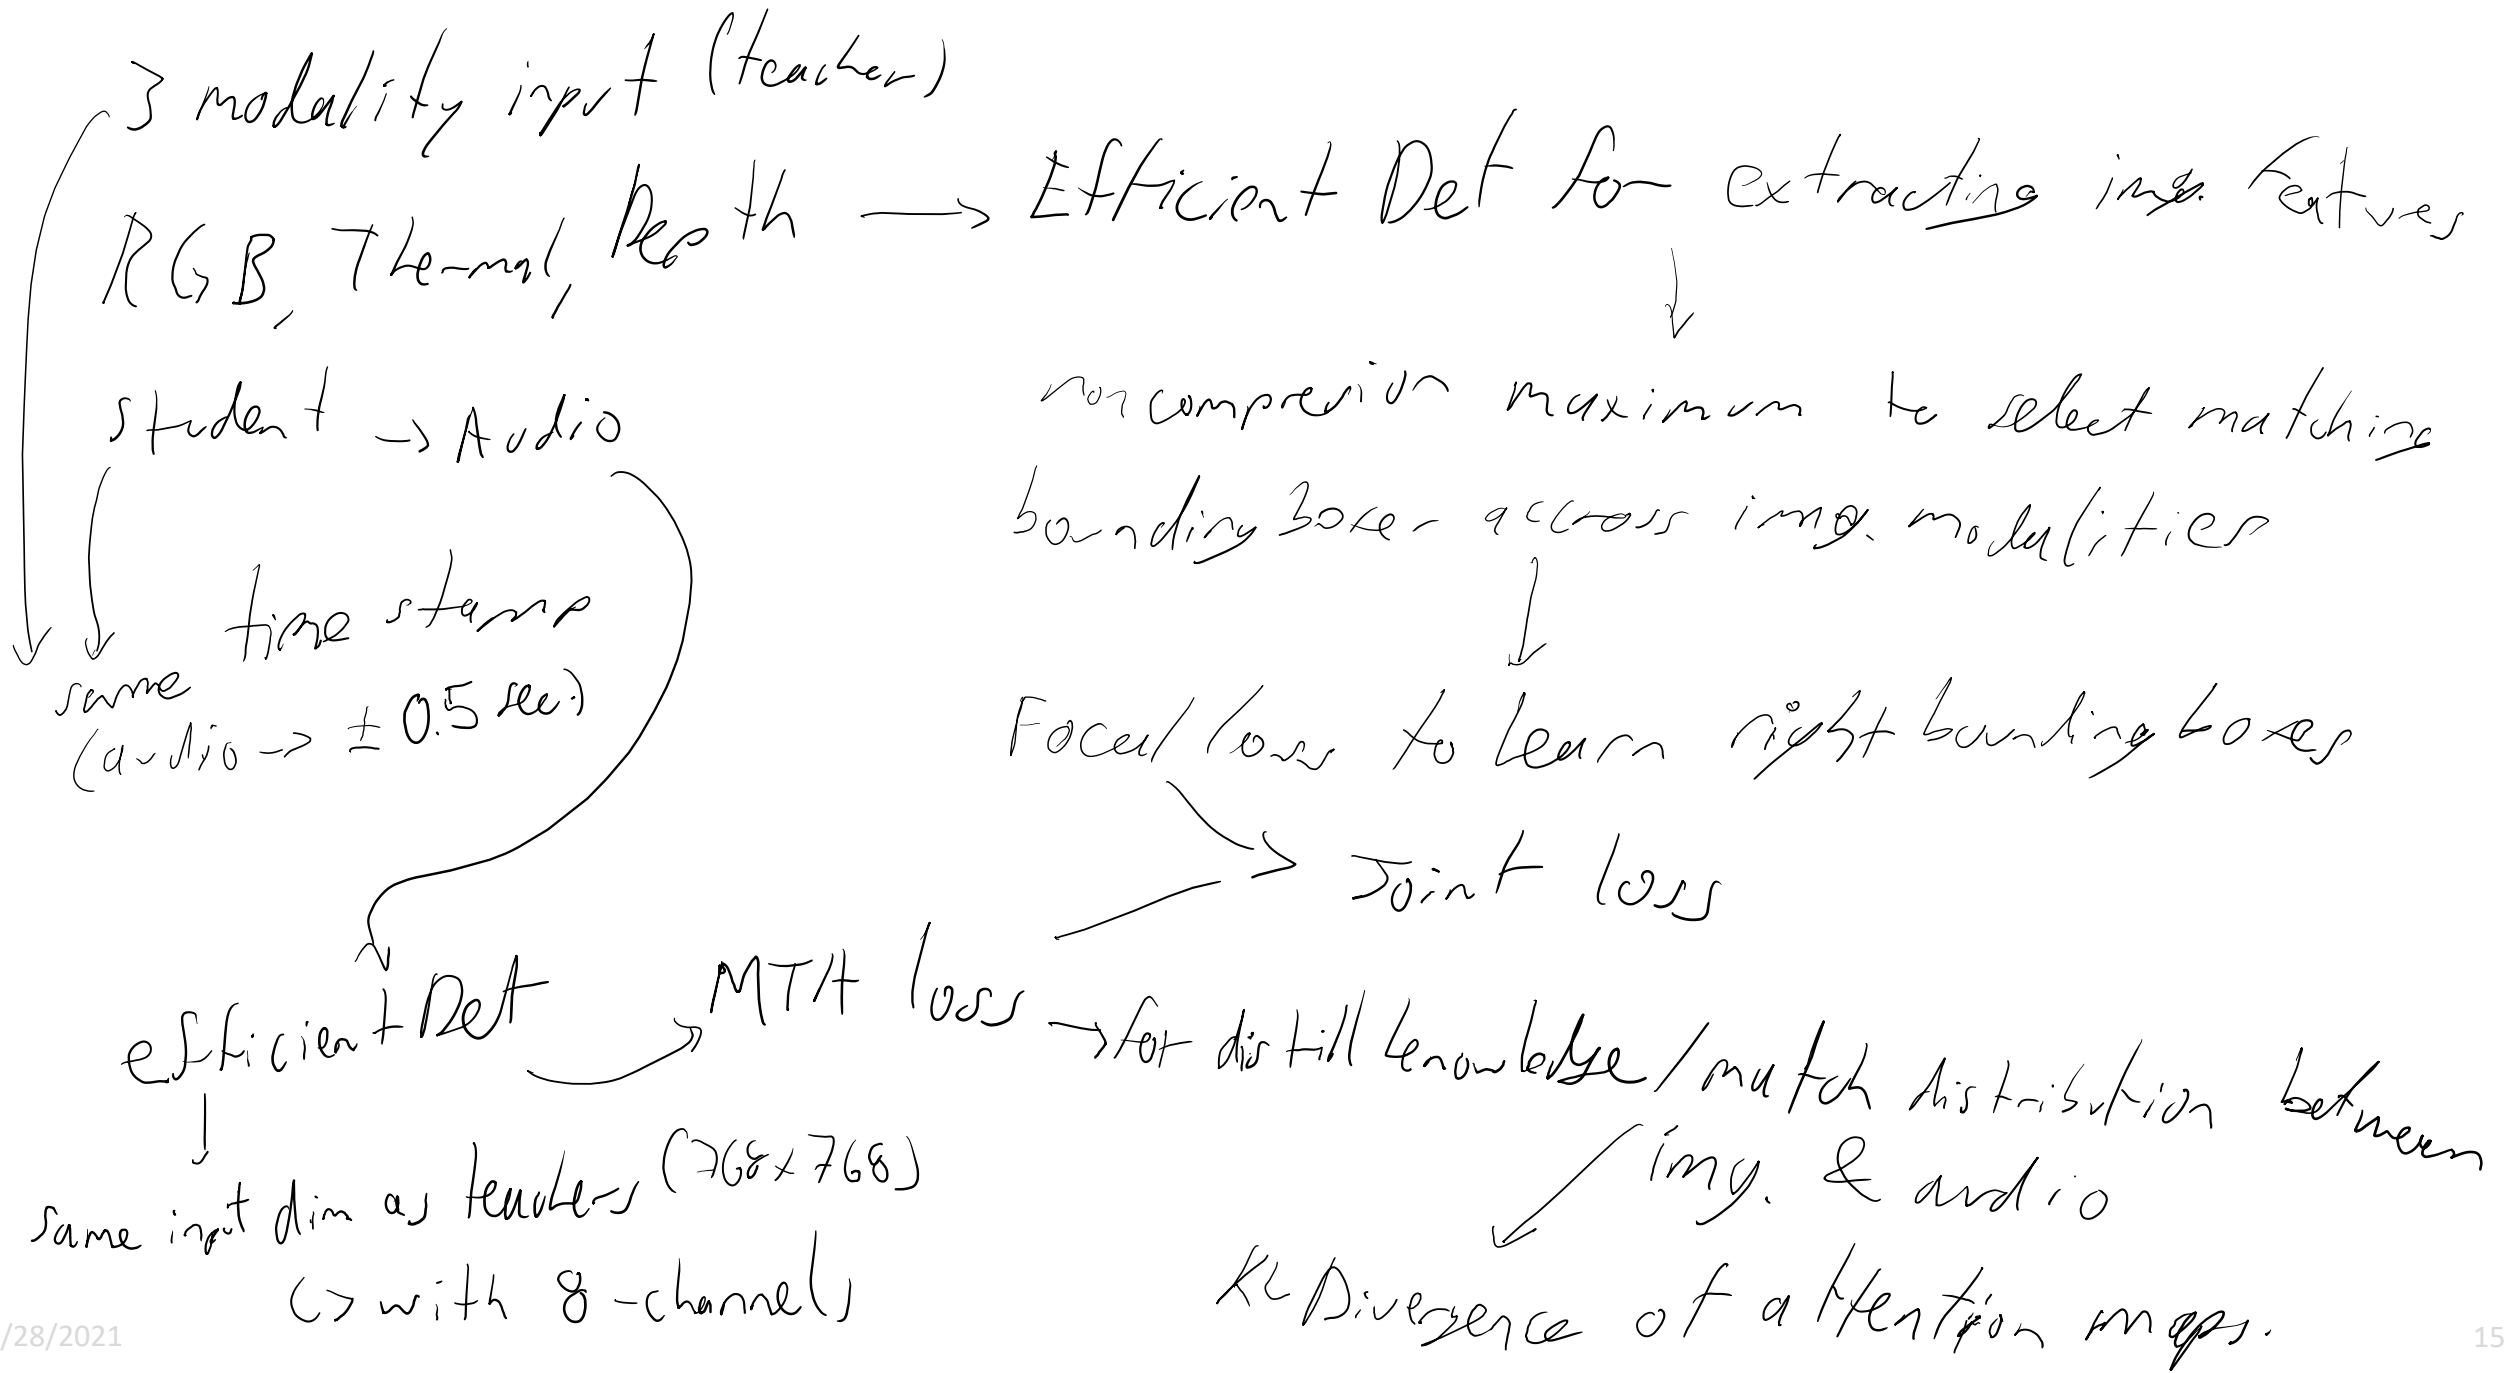 3 modality input (teacher)
RGB, Thermal, Depth → EfficientDet for extracting img. features
student → Audio
noncompression maximum to select matching
bounding boxes accross img. modalities
same time stamp
(audio → ± 0.5 sec.)
Focal loss to learn right bounding boxes
Joint loss
efficientDet
MTA loss → for distill knowledge/match distribution between
img. & audio
same input dim as teachers (768x768)
↳ with 8-channels
KL Divergence of attention maps.
/28/2021
15